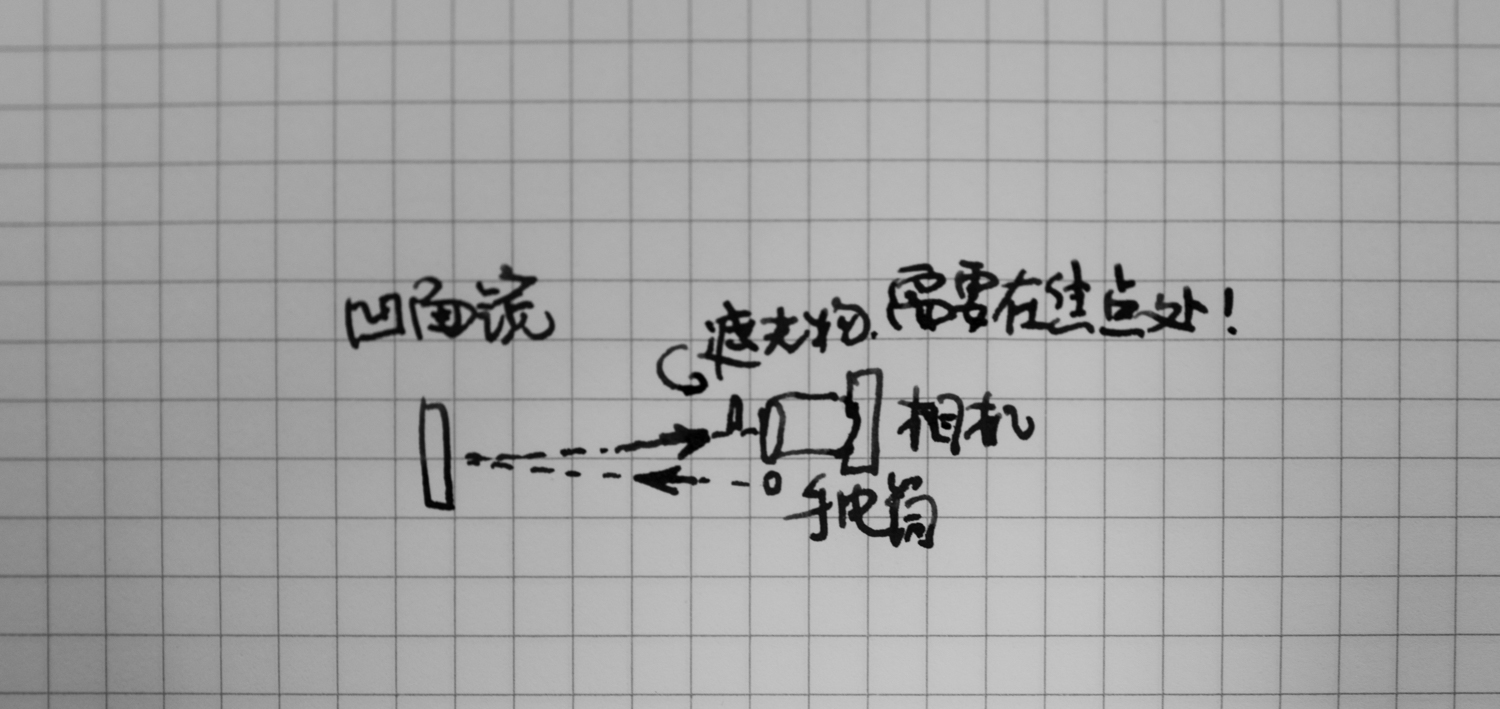 凹面镜
遮光物.需要在焦点处!
相机
手电筒